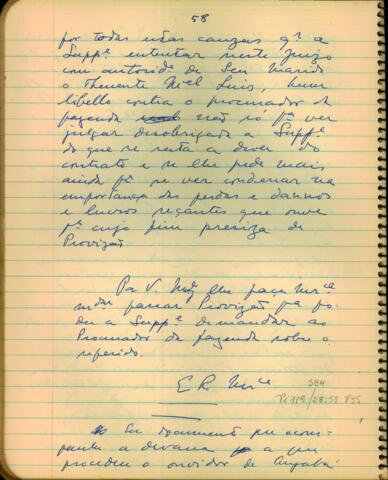 58
por todas estas cauzas qr a
Suppe intentar neste Juizo
com autoride de Seu Marido
o Thenente Mel Luis, hum
libello contra o procurador da
fazenda não só pa ver
julgar desobrigada a Suppe
do que se resta a dever do
contrato e se lhe pede mais
ainda pa se ver condenar na
importança das perdas e damnos
e lucros cegantes que ouve
pa cujo fim preciza de
Provizão
Pa V. Mge lhe faça Mce
mdar passar Provizão pa po-
der a Suppe demandar ao
Procurador da fazenda sobre o
referido.
E R Mce
584
Pi 719/28:58 P55
Eu documento que acom-
panha a devassa a que
procedeu o ouvidor de Cuyabá